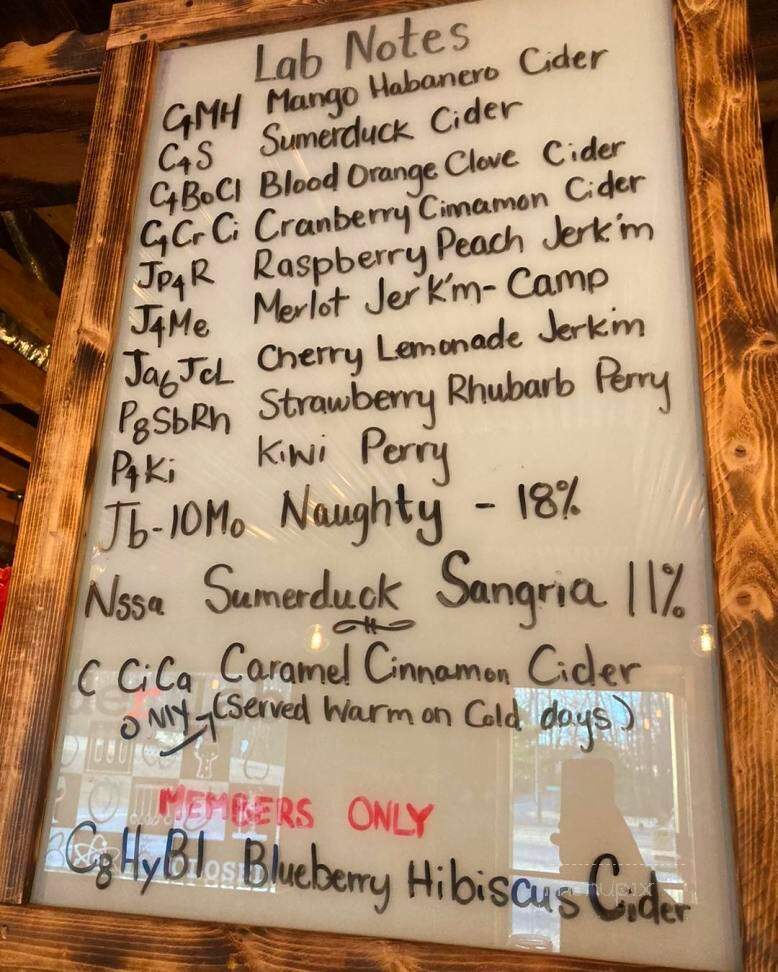 Lab Notes
C4MH Mango Habanero Cider
C4S Sumerduck Cider
C4BoCl Blood Orange Clove Cider
C4CrCi Cranberry Cimamon Cider
JP4R Raspberry Peach Jerk'm
J4Me Merlot Jerk'm - Camp
Ja6JcL Cherry Lemonade Jerkim
P8SbRh Strawberry Rhubarb Perry
P4Ki Kiwi Perry
Jb-10Mo Naughty - 18%
Nssa Sumerduck Sangria 11%
C CiCa Caramel Cinnamon Cider
only (Served Warm on Cold days)
MEMBERS ONLY
C8HyBl Blueberry Hibiscus Cider